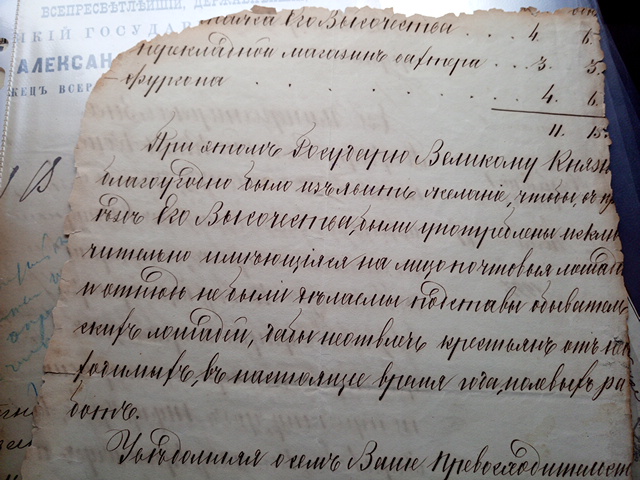 ВСЕПРЕСВѢТЛѢЙШІЙ, ДЕРЖАВНѢЙ
ИКІЙ ГОСУДАР
АЛЕКСАН
ЖЕЦЪ ВСЕР
Его Высочества . . . 4. 6.
перекладной магазинъ . . . 3. 3.
фургона . . . . . . . 4. 6
11. 15
При этомъ Государю Великому Княз
благоугодно было изъявить желаніе, чтобы, въ
Его Высочества, были употреблены исклю
чительно имѣющіяся на лицо почтовыя лошад
и отнюдь не были дѣлаемы подставы обыватель
скихъ лошадей, дабы не отвлечь крестьянъ отъ
ходимыхъ, въ настоящее время года, полевыхъ ра
ботъ.
Увѣдомляя о семъ Ваше Превосходительст